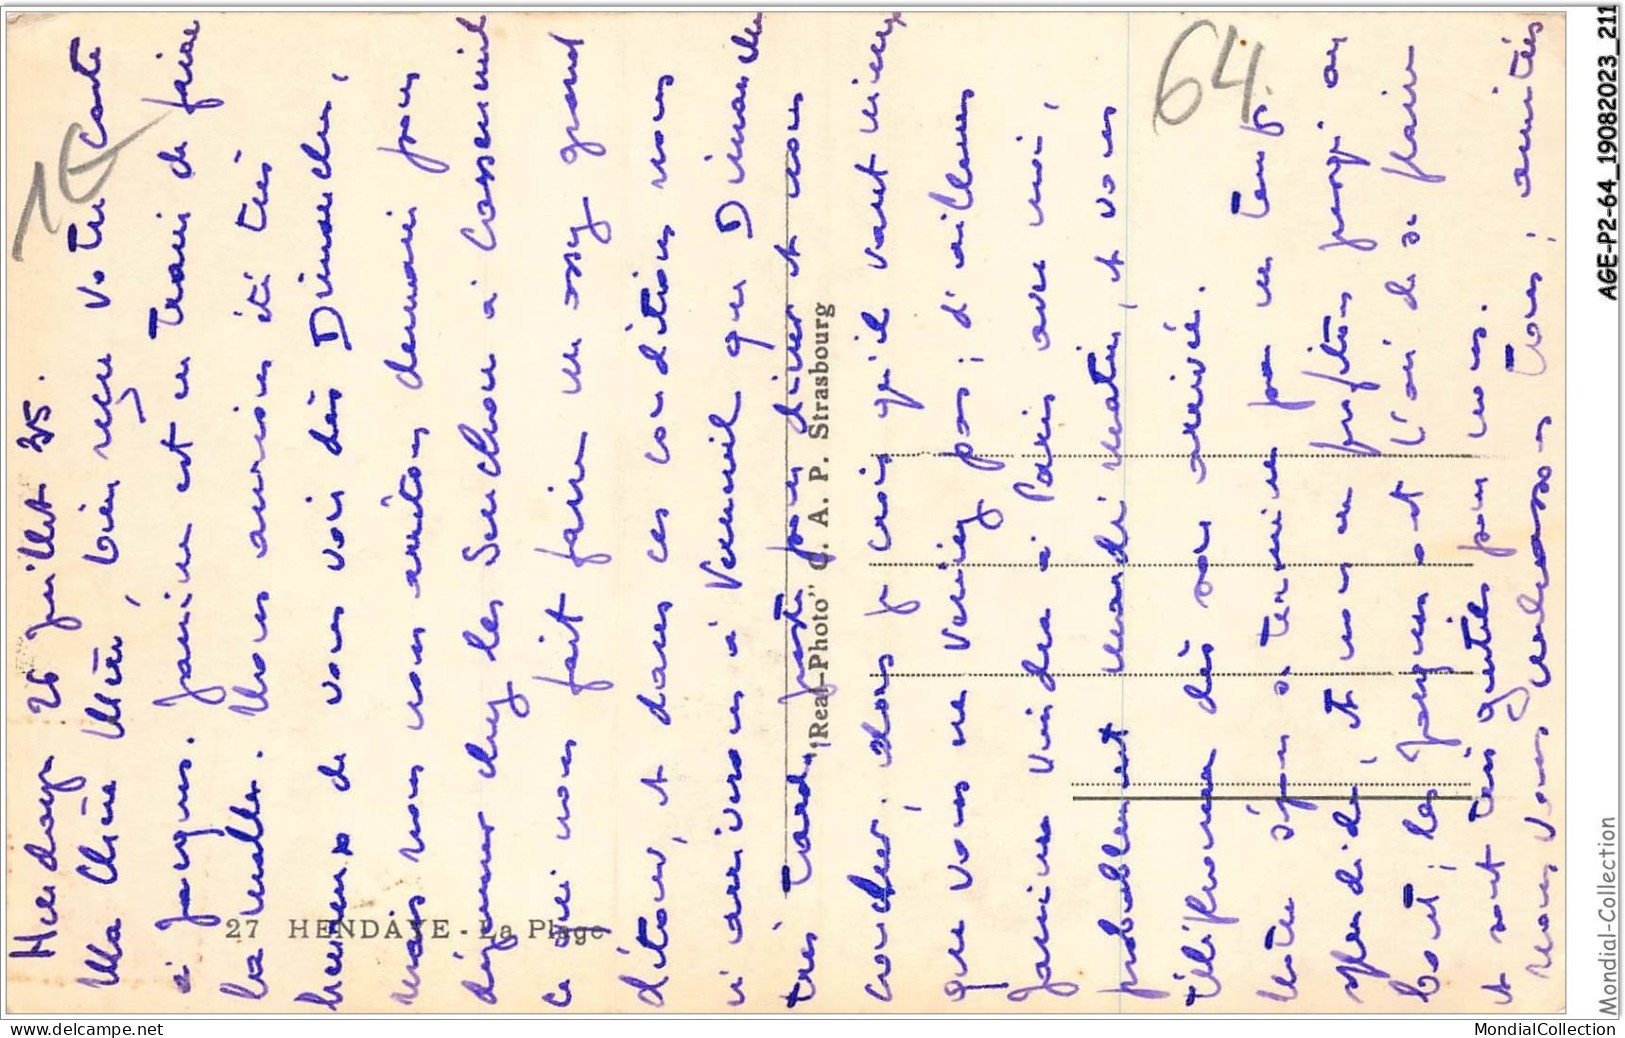 Hendaye 26 juillet 35.
Ma Chère Mère, bien reçu votre carte
à Jacques. Janine est en train de faire
la malle. Nous aurions été très
heureux de vous voir dès Dimanche,
mais nous nous arrêtons demain pour
déjeuner chez les à Casseneuil
ce qui nous fait faire un assez grand
détour, et dans ces conditions nous
n'arriverons à Verneuil que Dimanche
très tard, juste pour dîner et nous
coucher; alors je crois qu'il vaut mieux
que vous ne veniez pas; d'ailleurs
Janine viendra à Paris avec moi,
probablement mardi matin, et vous
téléphonera dès son arrivée.
Notre séjour se termine par un temps
splendide, et nous en profitons jusqu'au
bout; les Jacques ont l'air de se plaire
et sont très gentils pour nous.
Nous vous embrassons tous; amitiés
1€
64
27 HENDAYE - La Plage
"Real-Photo" C. A. P. Strasbourg
AGE-P2-64_19082023_211
Mondial-Collection
Hosted by delcampe.net
MondialCollection